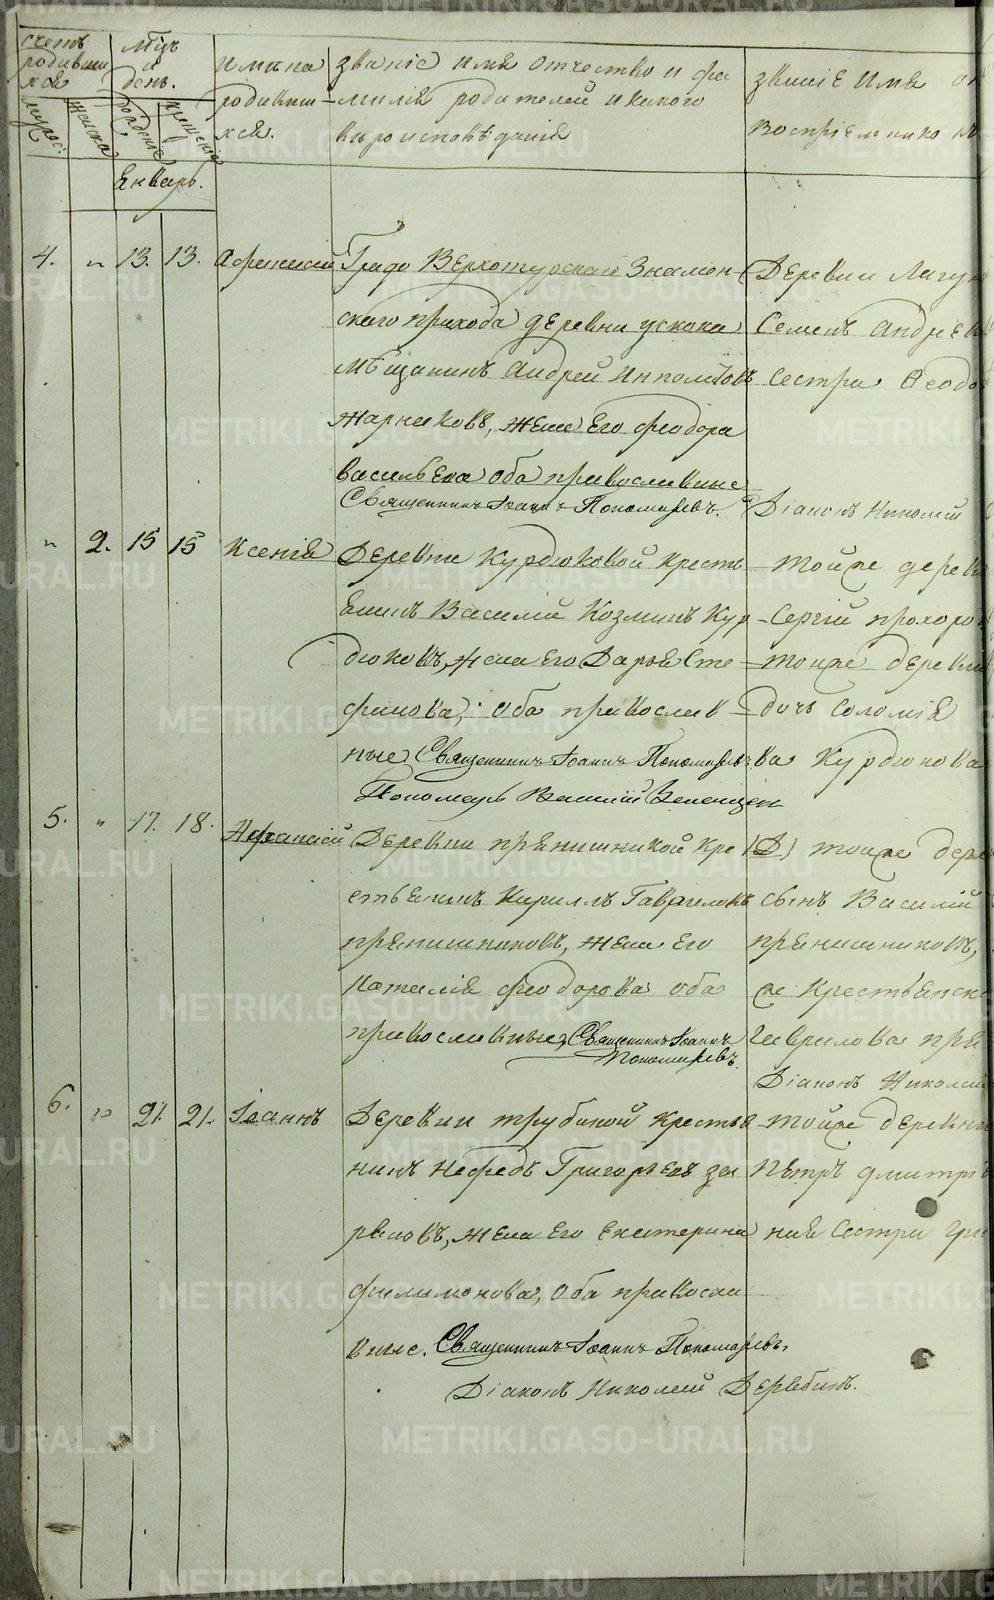 счетъ родивши хся
мцъ и день.
мужес:
женска
рожденія
крещенія
Январь.
имена родивши хся.
званіе имя отчество и фа
милія родителей и какого
вѣроисповѣданія
званіе имя
воспріемнико
4. " 13. 13. Афанасій
Градо Верхотурской Знамен
скаго прихода деревни
мѣщанинъ Андрей Ипполитовъ
жена его Феодора
Васильева оба православные
Священникъ Іоаннъ Пономаревъ.
Деревни
Семенъ Андрѣ
Сестра Ѳеодо
Діаконъ Николай
" 2. 15 15 Ксенія
Деревни Курдюковой кресть
янинъ Василій Козминъ Кур
дюковъ, жена его Дарья Сте
фанова, оба православ
ные Священникъ Іоаннъ Пономаревъ
Пономарь Василій Зеленцен
тойже дерев
Сергій прохоро
тойже деревни
дочь Соломія
ва Курдюкова
5. " 17. 18. Афанасій
Деревни прянишниковой кре
стьянинъ Кирилъ Гавриловъ
прянишниковъ, жена его
Наталія феодорова оба
православные, Священникъ Іоаннъ
Пономаревъ.
тойже дере
сынъ Василій
прянишниковъ,
же крестьянск
Гаврилова пря
Діаконъ Николай
6. " 21. 21. Іоаннъ
Деревни трубиной крестья
нинъ Нефедъ Григорьевъ
жена его екатерина
филимонова, оба правосла
вные. Священникъ Іоаннъ Пономаревъ,
Діаконъ Николай Дерябинъ.
тойже деревни
Пѣтръ дмитрі
METRIKI.GASO-URAL.RU